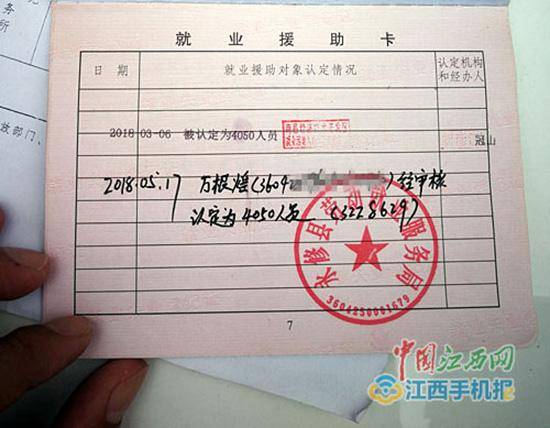 就业援助卡
日 期
就业援助对象认定情况
认定机构
和经办人
2018 03-06 被认定为4050人员
冠山
2018.05.17 万根煌(3604 )经审核
认定为4050人员 (3228629)
永修县劳动就业服务局
3604250001679
7
中国江西网
江西手机报
务
所
放部门、